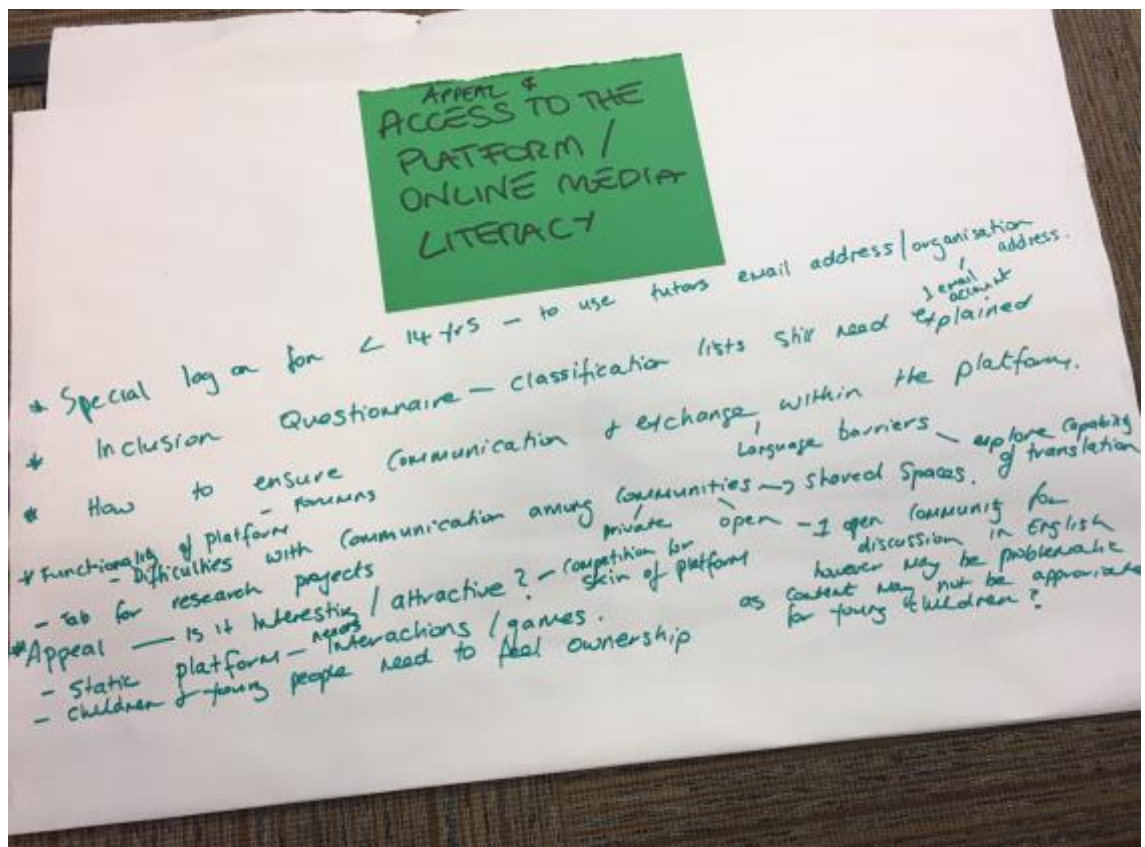 APPEAL &
ACCESS TO THE
PLATFORM /
ONLINE MEDIA
LITERACY
* Special log on for < 14 yrs – to use tutors email address/organisation address.
1 email account
* Inclusion Questionnaire – classification lists still need explained
* How to ensure communication & exchange within the platform.
Language barriers – explore capability of translation
* Functionality of platform – Forums
- Difficulties with communication among communities → shared spaces.
private open – 1 open community for discussion in English
however may be problematic
as content may not be appropriate
for young children?
- Tab for research projects
* Appeal – Is it interesting / attractive? – competition for skin of platform
- Static platform – needs interactions / games.
- Children & young people need to feel ownership